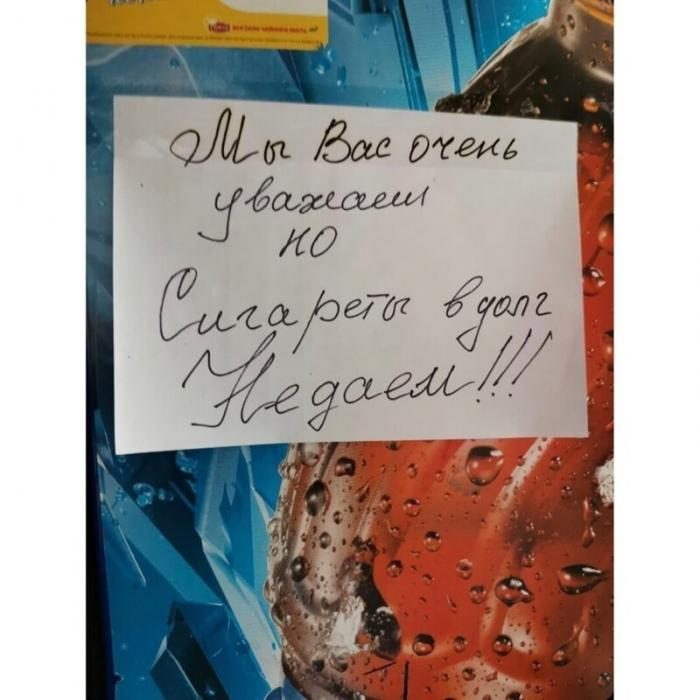 Lipton ВСЯ СИЛА ЧАЙНОГО ЛИСТА
Мы Вас очень
уважаем
но
Сигареты в долг
Недаем!!!